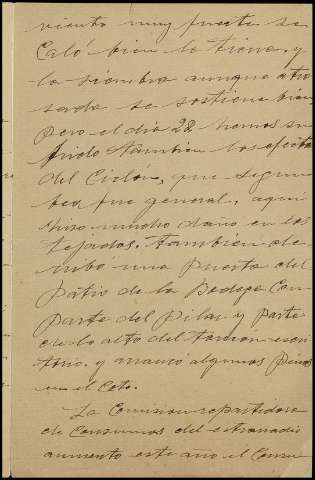 viento muy fuerte se
Caló bien la tierra, y
la siembra aunque atra
sada se sostiene bien,
pero el dia 28 hemos su
frido tambien los efectos
del Ciclon, que segun
fue general, aqui
hizo mucho daño en los
tejados. Tambien de
ribó una puerta del
patio de la Bodega Con
parte del pilar y parte
de lo alto del
y arrancó algunos pinos
en el Coto.
La Comision repartidora
de Consumos del
aumento este año el Consu